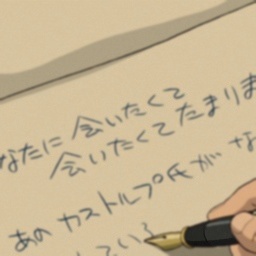 なたに 会いたくて
会いたくてたまりま
あの カストルプ氏が な
ている